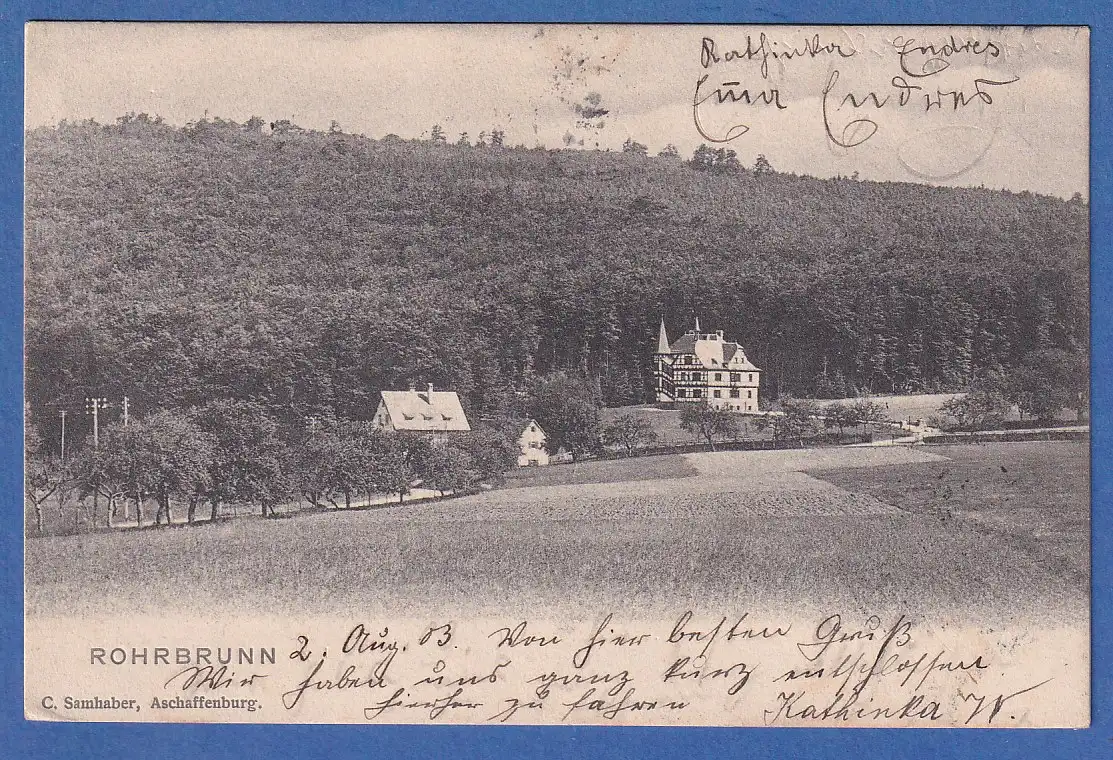 Kathinka Endres
Ema Endres
ROHRBRUNN
2. Aug. 03. Von hier besten Gruß
Wir haben uns ganz kurz entschlossen
hierher zu fahren Kathinka W.
C. Samhaber, Aschaffenburg.